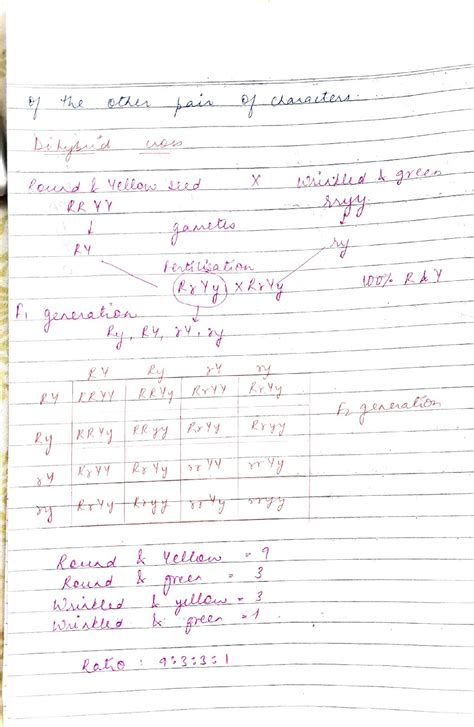 of the other pair of characters.
Dihybrid cross
Round & Yellow seed X Wrinkled & green
RRYY rryy
↓ gametes ↓
RY ry
Fertilisation
RrYy X RrYy 100% R & Y
F1 generation
Ry, RY, rY, ry
RY Ry rY ry
RY RRYY RRYy RrYY RrYy F2 generation
Ry RRYy RRyy RrYy Rryy
rY RrYY RrYy rrYY rrYy
ry RrYy Rryy rrYy rryy
Round & Yellow = 9
Round & green = 3
Wrinkled & yellow = 3
Wrinkled & green = 1
Ratio : 9:3:3:1